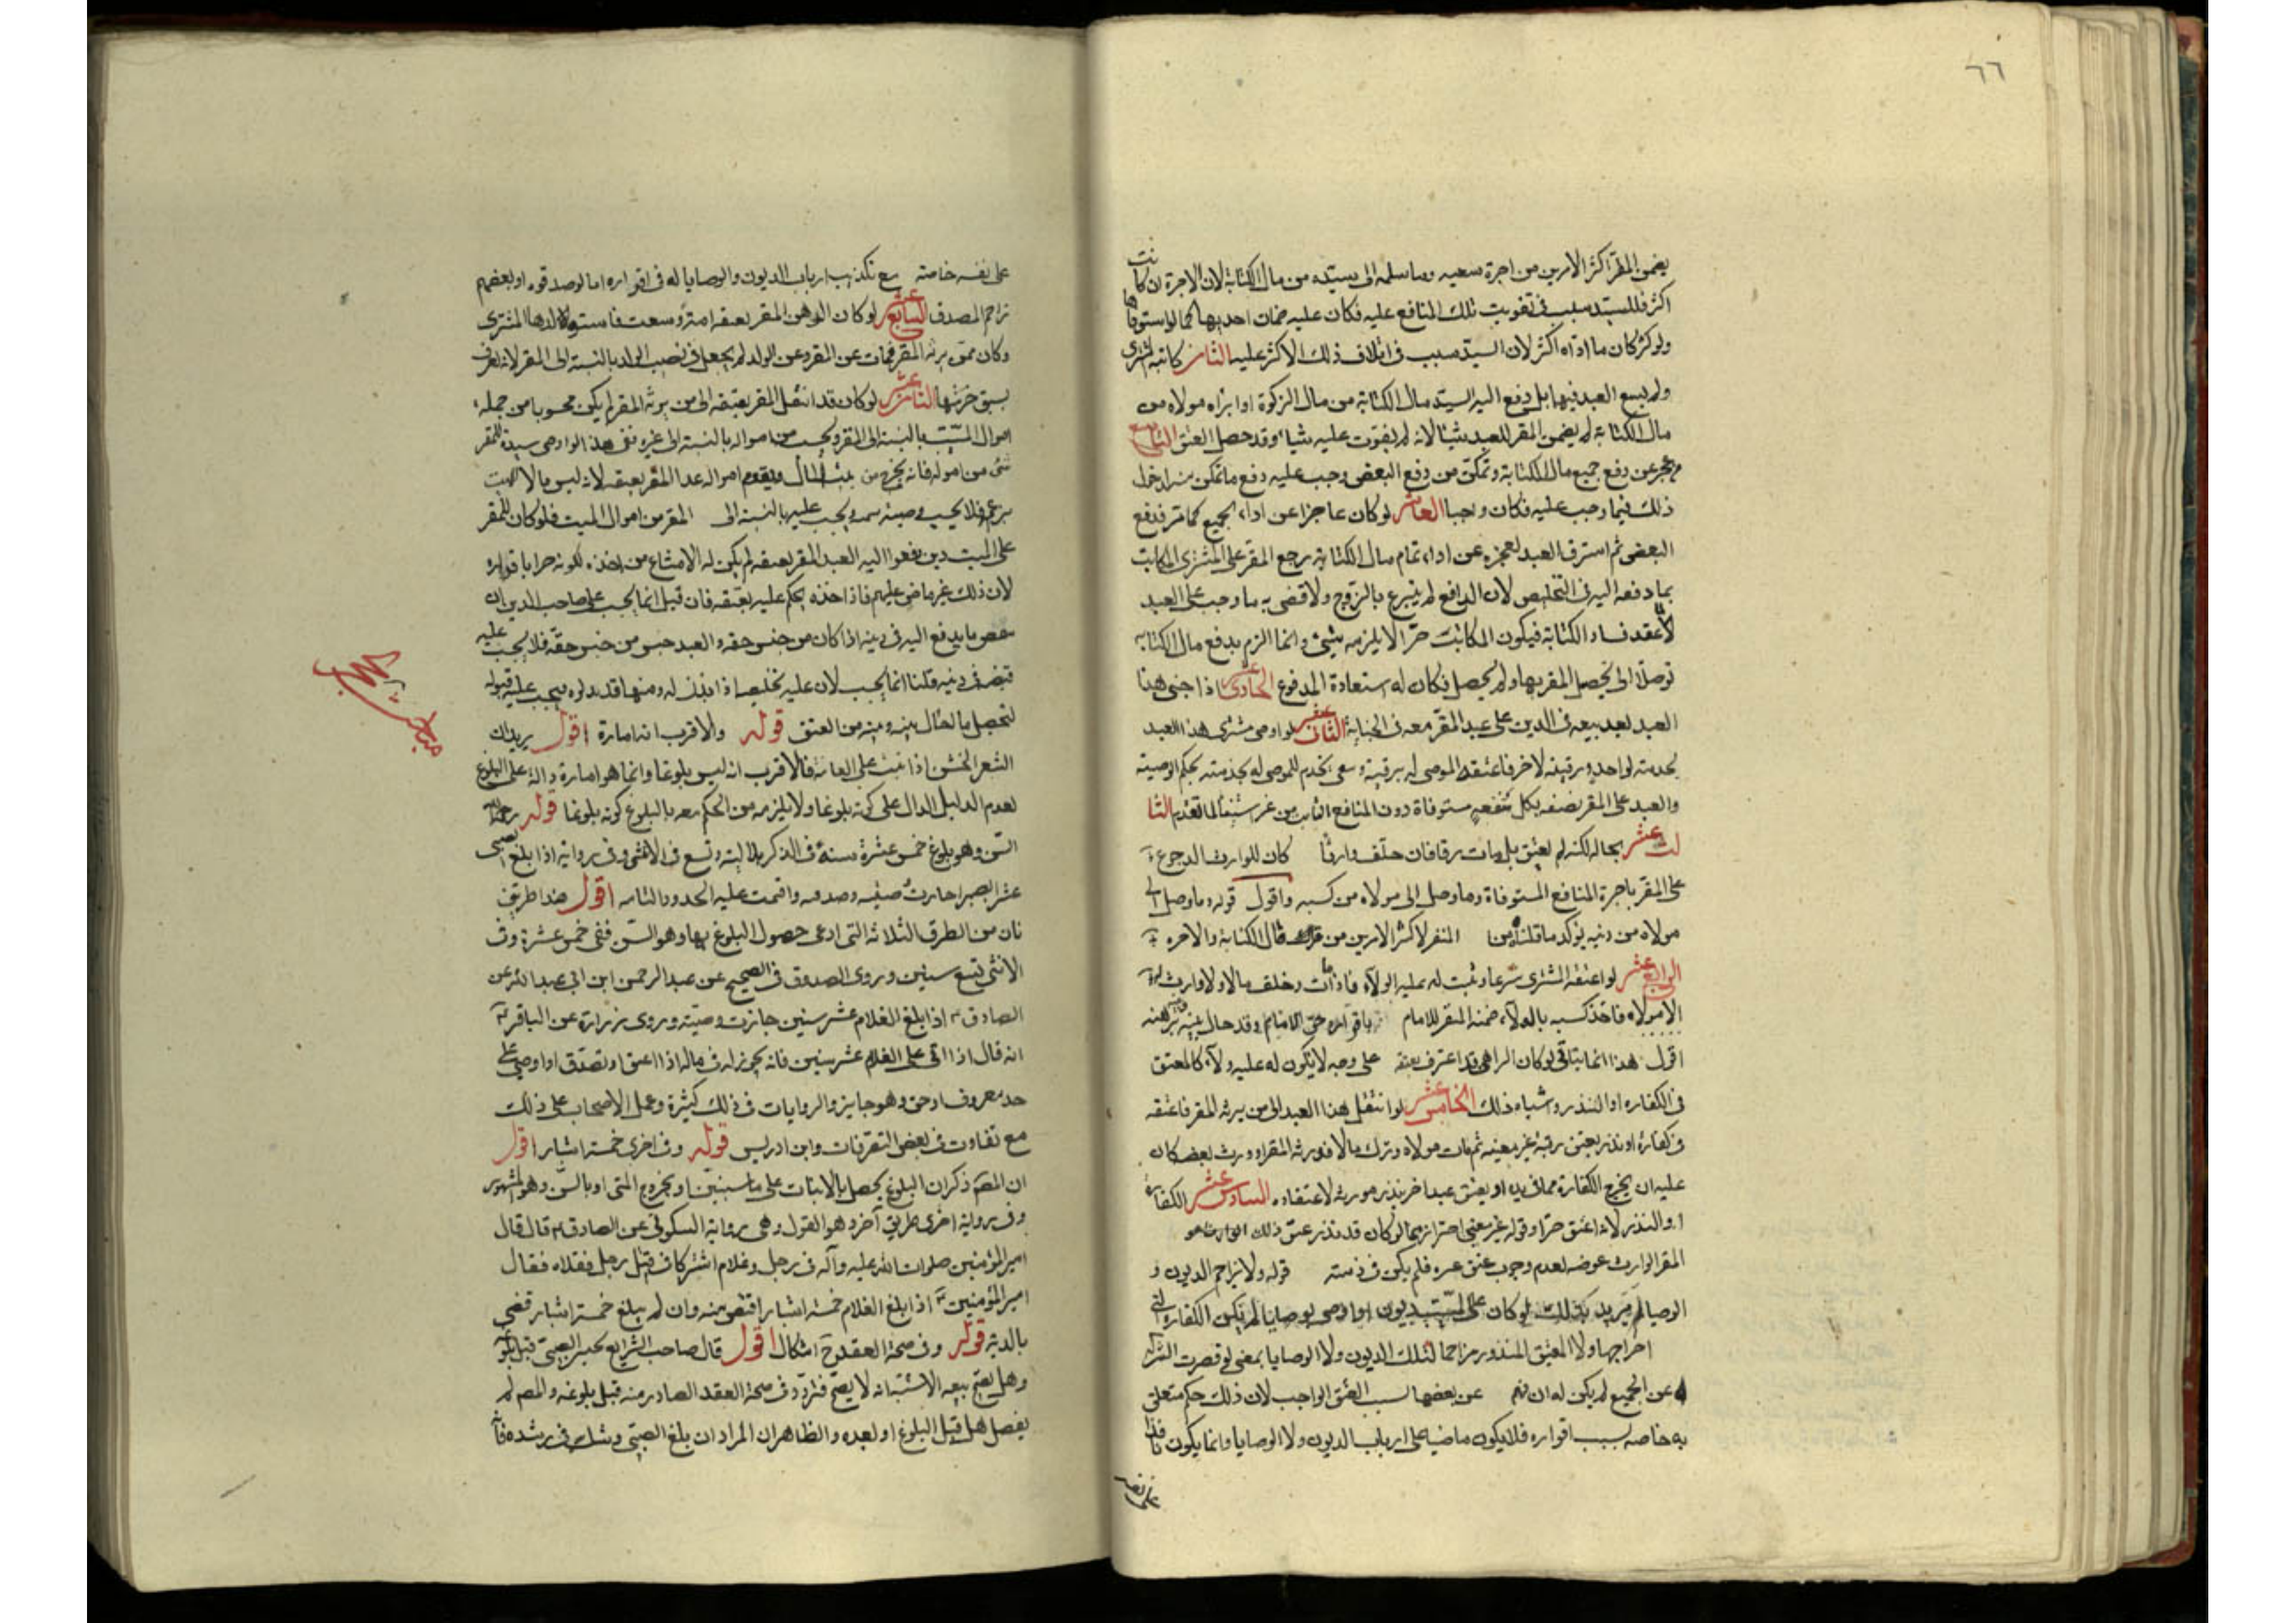 ٦٦
يضمن المقر اكثر الامرين من اجرة سعيه وما سلمه الى سيّده من مال الكتابة لان الاجرة ان كانت
اكثر فللسيّد سبب في تفويت تلك المنافع عليه فكان عليه ضمان احديها كما لو استوفاها
ولو كثر كان ما ادّاه اكثر لان السيّد سبب في اتلاف ذلك الاكثر عليه الثامن كاتبه المشترى
ولم يسع العبد فيها بل دفع اليه السيّد مال الكتابة من مال الزكوة او ابراه مولاه من
مال الكتابة لم يضمن المقر للعبد شيئا لانه لم يفوّت عليه شيئا وقد حصل العتق التاسع
عجز عن دفع جميع مال الكتابة وتمكن من دفع البعض وجب عليه دفع ما تمكن منه لدخول
ذلك فيما وجب عليه فكان واجبا العاشر لو كان عاجزا عن اداء الجميع كما مر فدفع
البعض ثم استرق العبد لعجزه عن اداء تمام مال الكتابة يرجع المقر على المشترى المكاتب
بما دفعه اليه في التخليص لان الدافع لم يتبرع بالزوج ولا قضى به ما وجب على العبد
لاعتقد فساد الكتابة فيكون المكاتب حرّا لا يلزمه شيئ وانما الزم بدفع مال الكتابة
توصلا الى تحصيل المقر بها ولم يحصل فكان له استعادة المدفوع الحادى عشر اذا جنى هذا
العبد بعد بيعه في الدين على عبد المقر معه في الجناية الثانى عشر لو اوصى مشترى هذا العبد
بخدمته لواحد وبرقبته لاخر فاعتقه الموصى له برقبته وسعى بخدم للموصى له بخدمته بحكم الوصية
والعبد على المقر نصفه بكل منفعه مستوفاة دون المنافع الفايت من غير استيفا لما تقدم الثا
لث عشر بحاله لكنه لم يعتق بل مات رقا فان خلّف وارثا كان للوارث الرجوع
على المقر باجرة المنافع المستوفاة وما وصل الى مولاه من كسبه واقول قوله وما وصل الى
مولاه من دنيه يؤكد ما قلناه من المقر لاكثر الامرين من مال الكتابة والاجره
الرابع عشر لو اعتقه المشترى شرعا وثبت له عليه الولاء فاذا مات وخلف مالا ولا وارث له
الا مولاه فاخذ كسبه بالولاء ضمنه المقر للامام باقراره حق الامام وقد حال بينه وبينه
اقول هذا انما يتاتى لو كان الراهن قد اعترف بعتقه على وجه لا يكون له عليه ولاء كالمعتق
في الكفاره او النذر وشباه ذلك الخامس عشر لو انتقل هذا العبد الى من يرثه المقر فاعتقه
في كفارة او نذر بعتق رقبة غير معينه ثم مات مولاه وترك مالا فورثه المقر او ورث بعضه كان
عليه ان يخرج الكفارة مما في يده او يعتق عبدا اخر بنذر مورثه لاعتقاده السادس عشر الكفارة
او النذر لانه اعتق حرّا وقوله غير معيّن احترازا بما لو كان قد نذر عتق ذلك
المقر الوارث عوضه لعدم وجوب عتق غيره فلم يكن في ذمته قوله ولا يزاحم الديون و
الوصايا يريد بذلك لو كان على الميّت ديون او اوصى بوصايا لم يكن الكفاره التي
اخراجها ولا المعتق المنذور مزاحما لتلك الديون ولا الوصايا بمعنى لو قصرت التركه
عن الجميع لم يكن له ان عن بعضها بسبب العتق الواجب لان ذلك حكم متعلق
به خاصه بسبب اقراره فلا يكون ماضيا على ارباب الديون ولا الوصايا وانما يكون نافذا
على نفسه
على نفسه خاصته مع تكذيب ارباب الديون والوصايا له في اقراره اما لو صدقوه او بعضهم
تزاحم المصدف السابع عشر لو كان الرهن المقر بعتقه امة وسعت فاستولدها المشترى
وكان ممّن يرثه المقر فمات عن المقر وعن الولد لم يجعل في نصيب الولد بالنسبة الى المقر لانه يعرف
بسبق حريتها الثامن عشر لو كان قد انتقل المقر بعتقه الى من يرثه المقر لم يكن محسوبا من جمله
اموال الميّت بالنسبة الى المقر ويحسب من امواله بالنسبة الى غيره ففي هذا لو اوصى سيده للمقر
شئ من امواله فانه يخرج من ثلث المال ويقوم امواله عدا المقر بعتقه لانه ليس مالا للميت
بزعمه فلا يحسب وصيته ويحسب عليه بالنسبة الى المقر من اموال الميت فلو كان للمقر
على الميت دين دفعوا اليه العبد المقر بعتقه لم يكن له الامتناع من اخذه لكونه حرا باقراره
لان ذلك غير ماضى عليهم فاذا اخذه يحكم عليه بعتقه فان قيل انما يجب على صاحب الدين ان
ما يدفع اليه في دينه اذا كان من جنس حقه والعبد ليس من جنس حقّه فلا يجب عليه
قبضه في دينه قلنا انما يجب لان عليه تخليصه اذا بذل له ومنها قد بذلوه فيجب عليه قبوله
لتحصل ما لحال بينه وبينه من العتق قوله والاقرب انه امارة اقول يريد ان
الشعر الخشن اذا نبت على العانة فالاقرب انه ليس بلوغا وانما هو امارة دالة على البلوغ
لعدم الدليل الدال على كونه بلوغا ولا يلزمه من الحكم معه بالبلوغ كونه بلوغا قوله رحمه الله
السّن وهو بلوغ خمس عشرة سنة في الذكر هلالية وتسع في الانثى وفي رواية اذا بلغ الصبى
عشرا بصيرا جازت وصيته وصدقته واقيمت عليه الحدود التامه اقول هذا طريق
ثان من الطرق الثلاثة التى ادعى حصول البلوغ بها وهو السّن ففى خمس عشرة وفي
الانثى تسع سنين وروى الصدوق في الصحيح عن عبد الرحمن ابن ابي عبد الله عن
الصادق ع اذا بلغ الغلام عشر سنين جازت وصيته وروى زرارة عن الباقر ع
انه قال اذا اتى على الغلام عشر سنين فانه يجوز له في ماله اذا اعتق او تصدّق او اوصى على
حد معروف او حق وهو جايز والروايات في ذلك كثيرة وعمل الاصحاب على ذلك
مع تفاوت في بعض التصرّفات وابن ادريس قوله وفي اخرى خمسة اشبار اقول
ان المصـ ذكر ان البلوغ يحصل بالانبات على ما سنبيّن او بخروج المنى او بالسّن وهو المشهور
وفي رواية اخرى طريق آخر وهو القول وهى رواية السكونى عن الصادق ع قال قال
امير المؤمنين صلوات الله عليه وآله في رجل وغلام اشتركا في قتل رجل فقلاه فقال
امير المؤمنين ع اذا بلغ الغلام خمسة اشبار اقتص منه وان لم يبلغ خمسة اشبار قضى
بالدية قوله وفي صحة العقد ح اشكال اقول قال صاحب الشرايع يختبر الصبى قبل بلوغه
وهل يصح بيعه الاشبه انه لا يصح فتردّد في صحة العقد الصادر منه قبل بلوغه والمصـ لم
يفصل هل قبل البلوغ او بعده والظاهر ان المراد ان بلغ الصبى وشك في رشده فانه